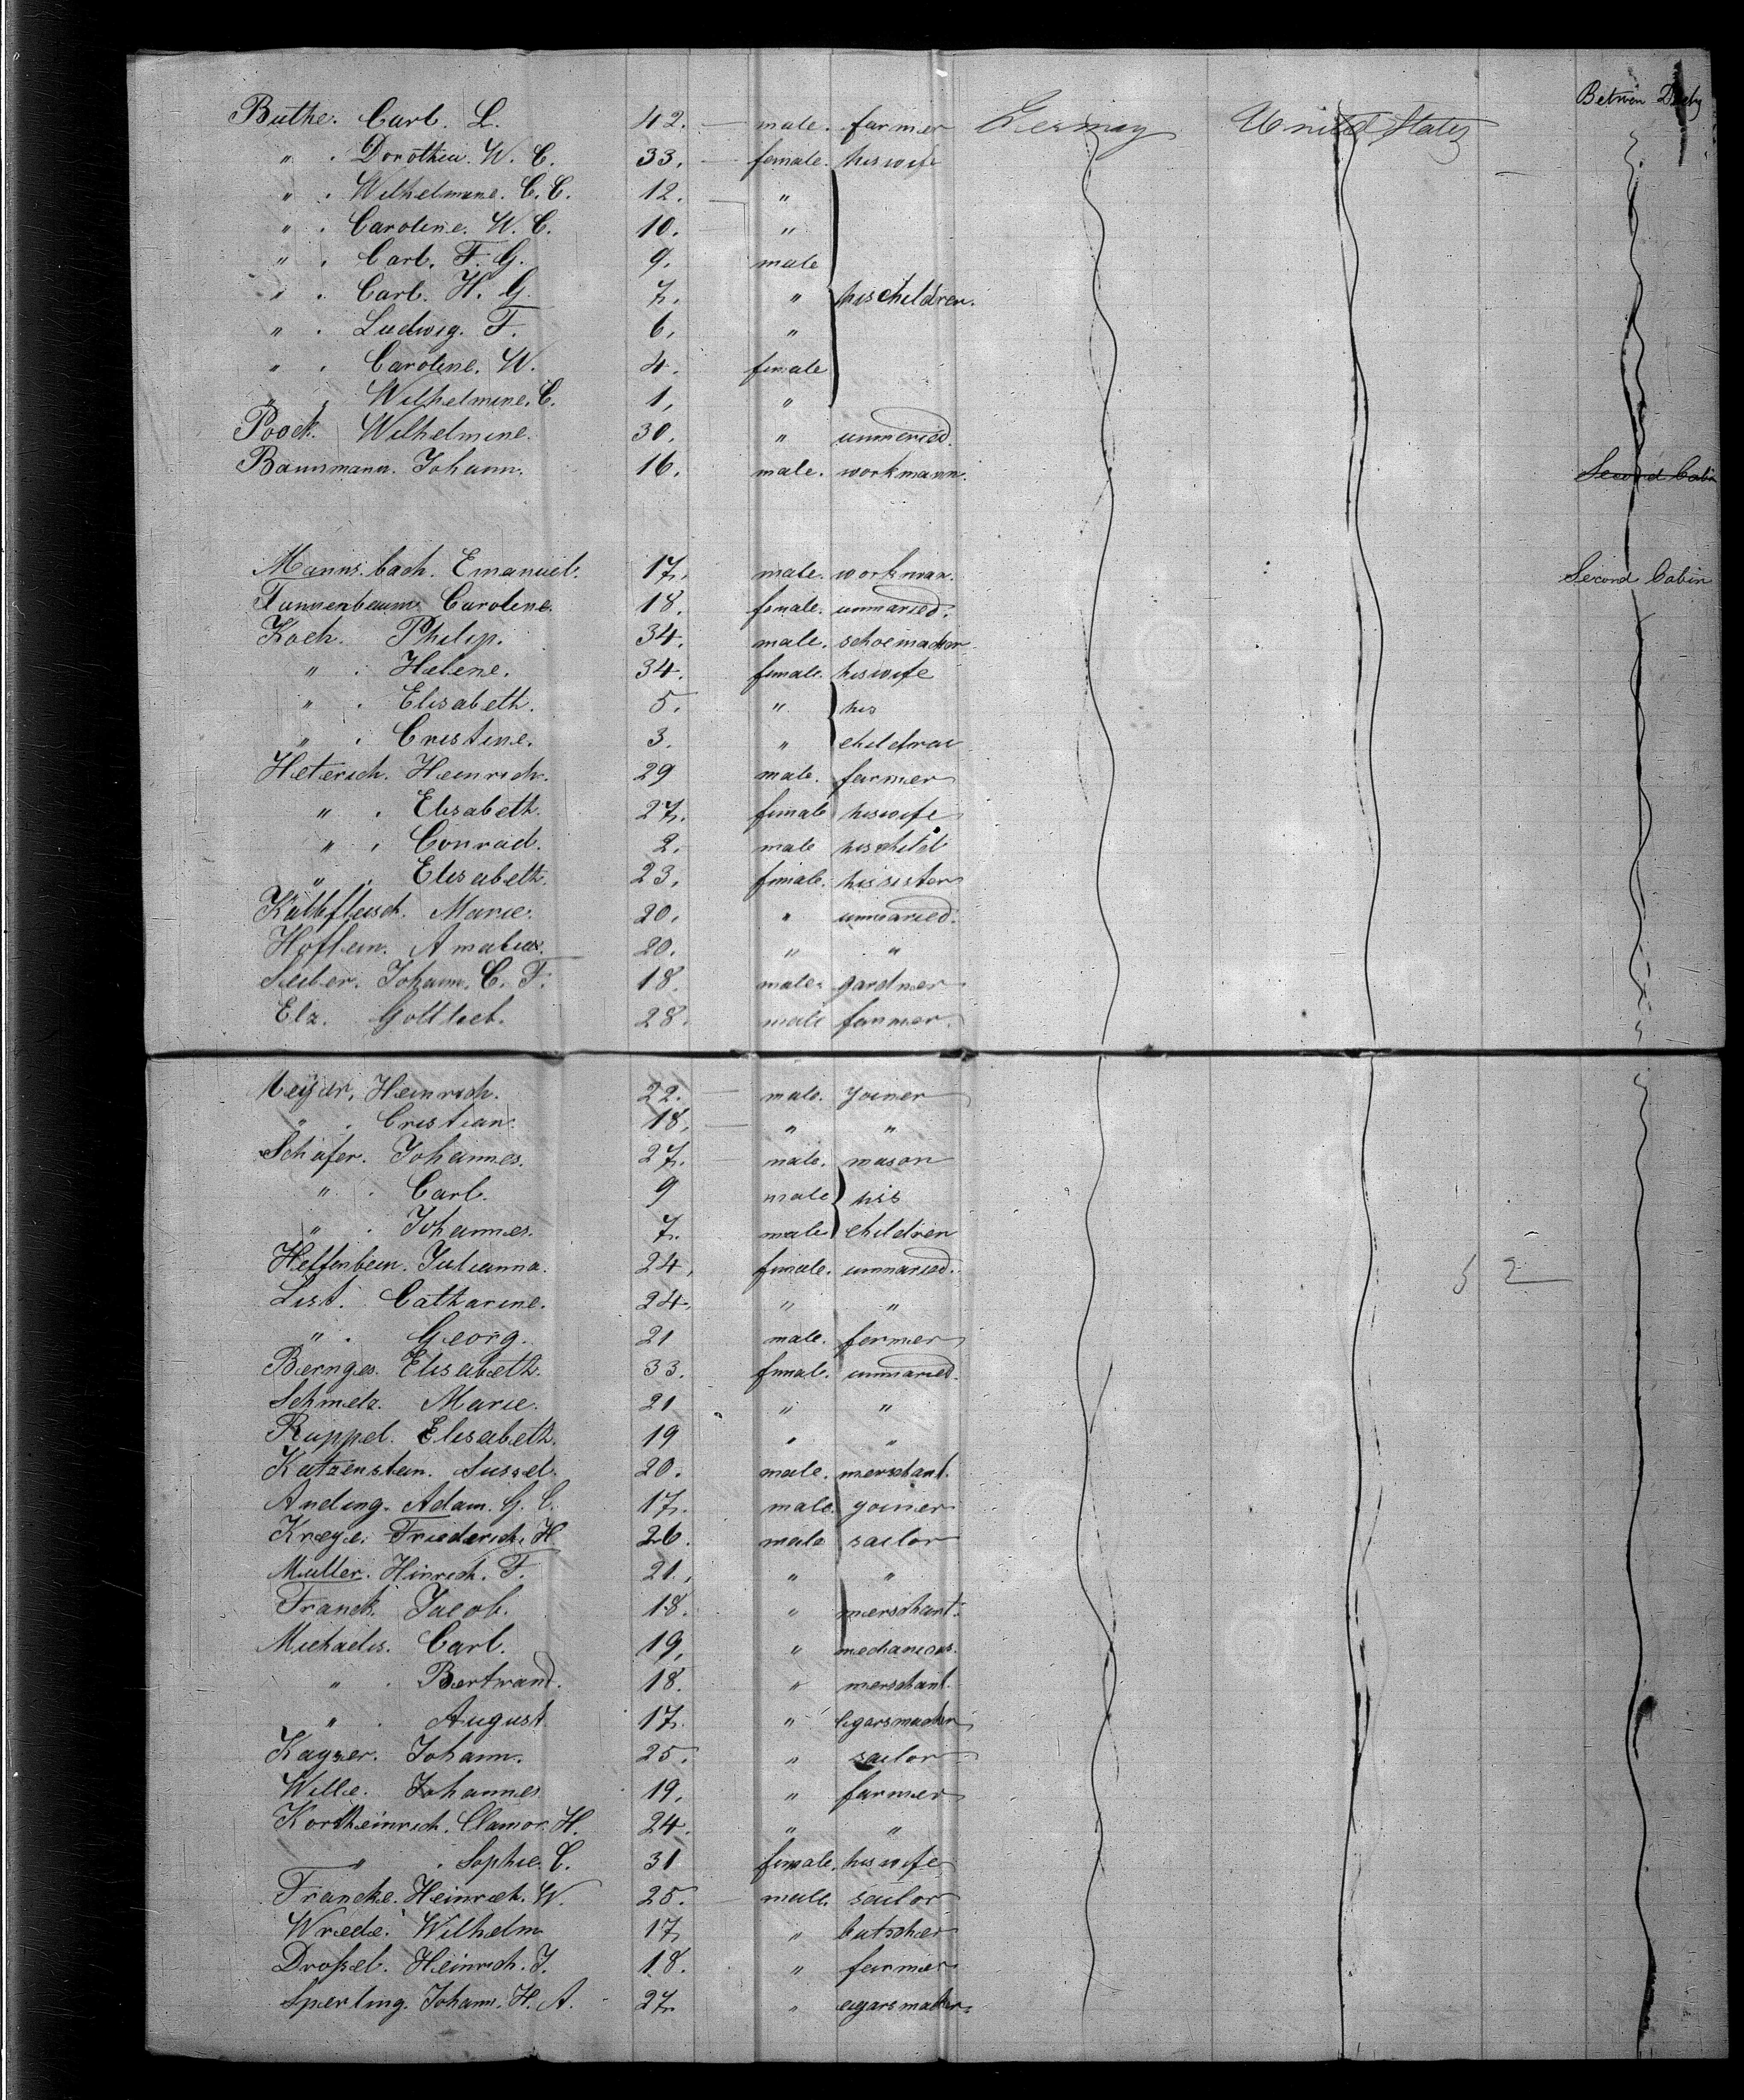 Between Decks
Buthe. Carl. L. 42. male. farmer Germany United States
" . Dorothea. W. C. 33. female. his wife
" . Wilhelmine. C. C. 12. "
" . Caroline. W. C. 10. "
" . Carl. F. G. 9. male
" . Carl. H. G. 7. " his children.
" . Ludwig. F. 6. "
" . Caroline. W. 4. female
" . Wilhelmine. C. 1. "
Poock. Wilhelmine. 30. " unmeried.
Baunmann. Johann. 16. male. workmann. Second Cabin
Manns.bach. Emanuel. 17. male. workman. Second Cabin
Tannenbaum. Caroline. 18. female. unmaried.
Koch. Philip. 34. male. schoemacker
" . Helene. 34. female. his wife
" . Elisabeth. 5. " his
" . Cristine. 3. " children
Heterich. Heinrich. 29 male. farmer
" . Elisabeth. 27. female his wife
" . Conrad. 2. male his child
" . Elisabeth. 23. female. his sister
Kalbfleisch. Marie. 20. " unmaried.
Hoflein. Amalia. 20. " "
Sieber. Johann. C. F. 18. male. gardner
Elz. Gottlieb. 28. male farmer.
Meyer, Heinrich. 22. male. yoiner
" . Cristian. 18. " "
Schäfer. Johannes. 27. male. mason
" . Carl. 9 male his
" . Johannes. 7. male children
Helfenbein. Julianna. 24. female. unmaried.
List. Catharine. 24. " " 5 2
" . Georg. 21 male. farmer
Bernges. Elisabeth. 33. female. unmaried.
Schmelz. Marie. 21 " "
Ruppel. Elisabeth. 19 " "
Katzenstein. Sussel. 20. male. merschant.
Anding. Adam. G. C. 17. male. yoiner
Kreye. Friederich. H 26. male sailor
Muller. Hinrich. F. 21. " "
Franck. Jacob. 18. " merschant.
Michaelis. Carl. 19. " mechanicus.
" . Bertrand. 18. " merschant.
" . August. 17. " cigarsmacker
Kayser. Johann. 25. " sailor
Wille. Johannes 19. " farmer
Kortheinrich. Clamor. H. 24. " "
" . Sophie. C. 31 female. his wife
Francke. Heinrich. W. 25. male. sailor
Wrede. Wilhelm 17 " butscher
Droßel. Heinrich. J. 18. " farmer
Sperling. Johann. H. A. 27. " cigarsmaker